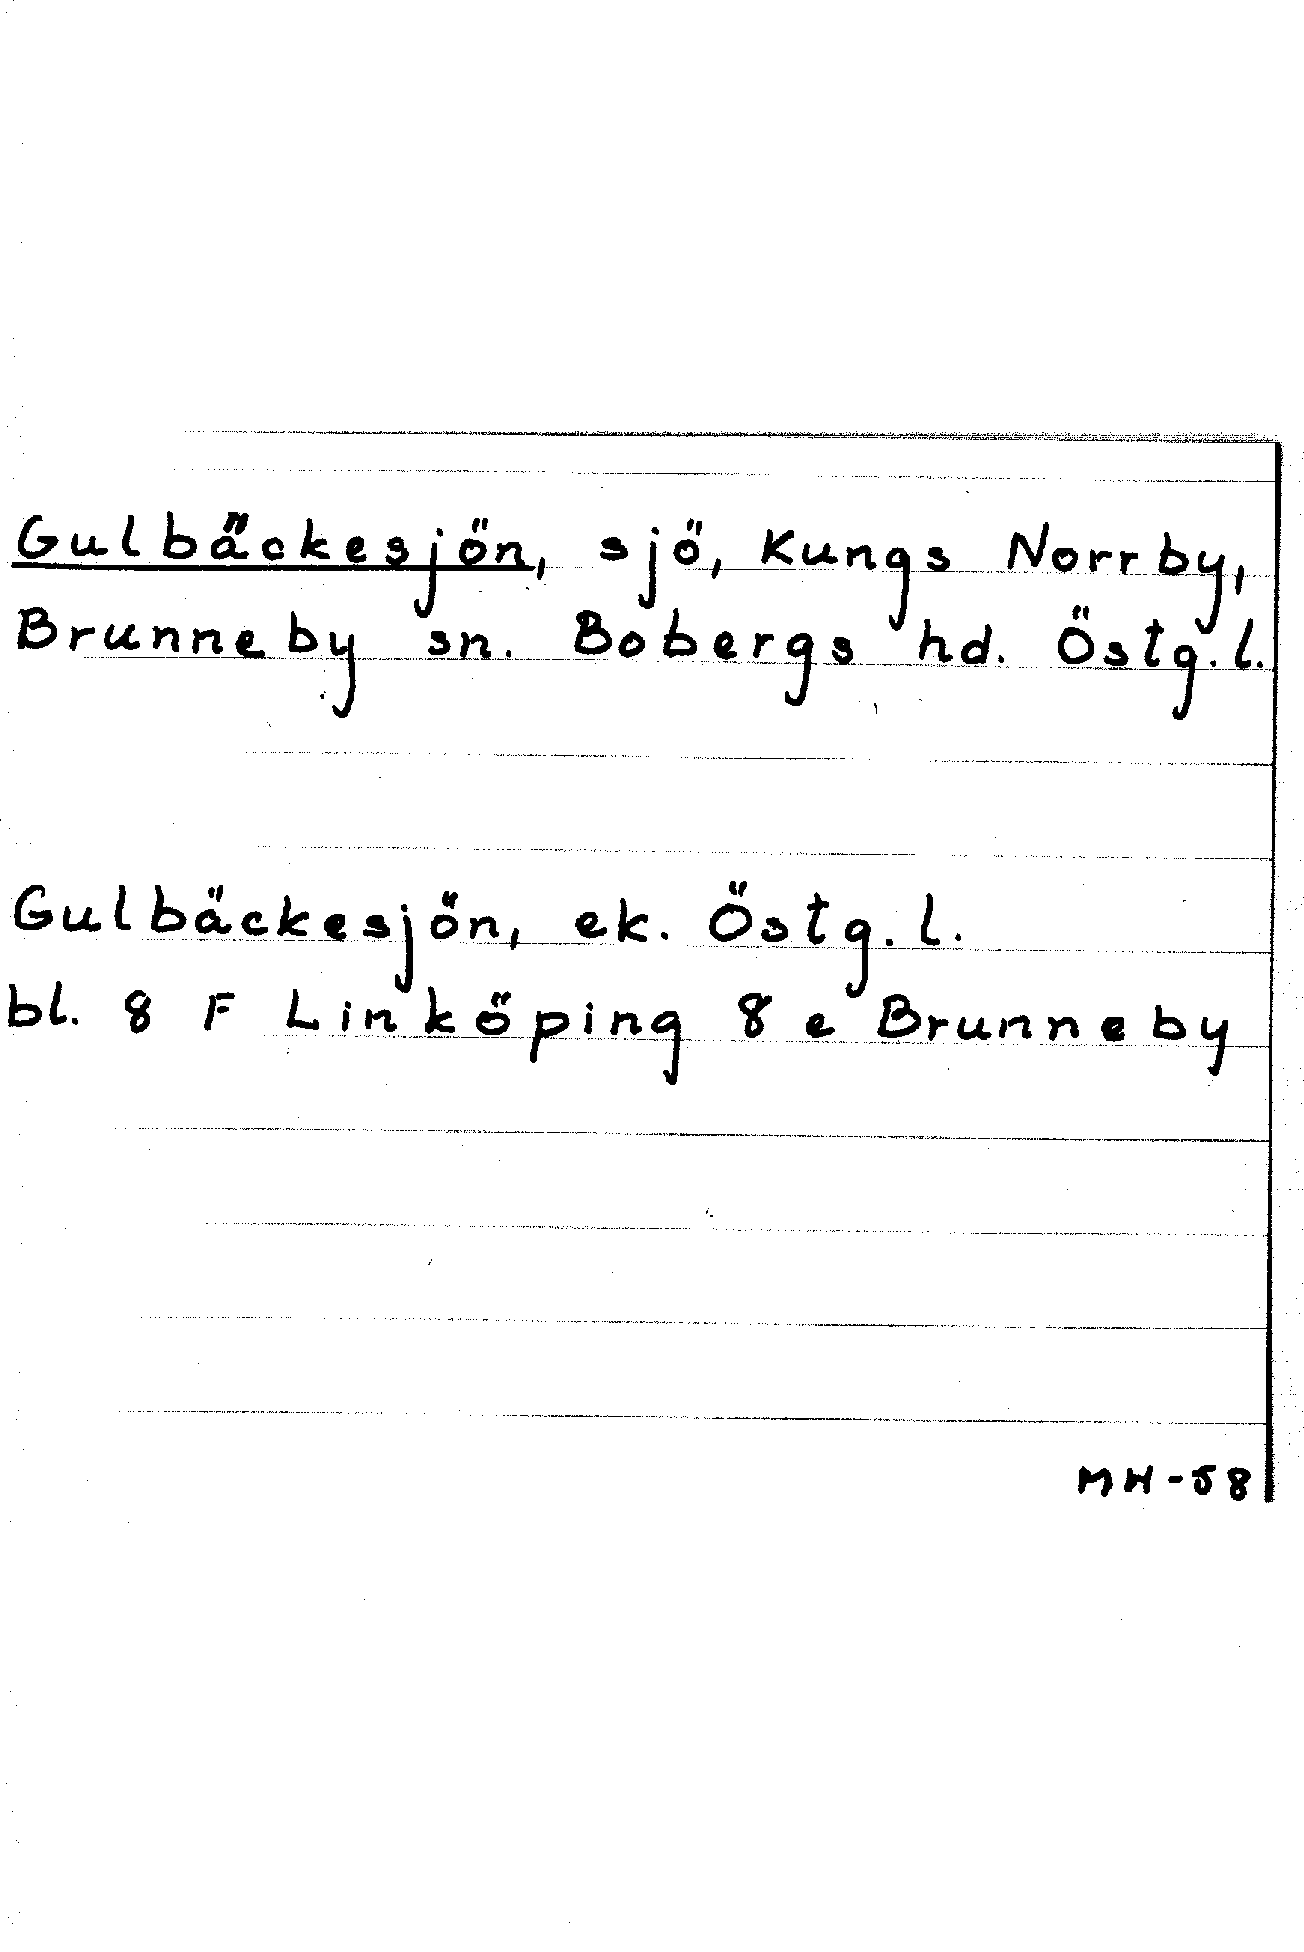 Gulbäckesjön, sjö, Kungs Norrby,
Brunneby sn. Bobergs hd. Östg.l.
Gulbäckesjön, ek. Östg.l.
bl. 8 F Linköping 8 e Brunneby
MH-58